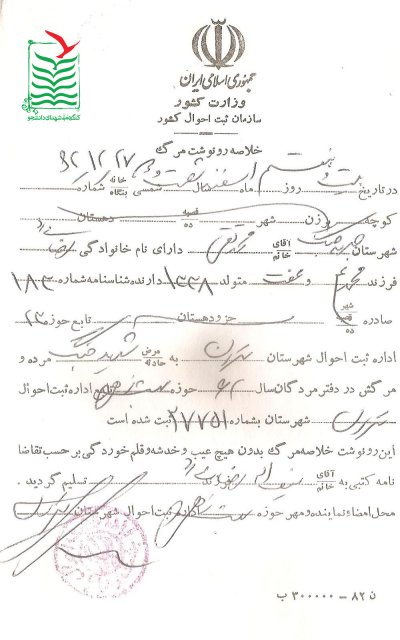 کنگره شهدای دانشجو
جمهوری اسلامی ایران
وزارت کشور
سازمان ثبت احوال کشور
خلاصه رونوشت مرگ
۶۲/۱۲/۲۷
در تاریخ بیست و هفتم روز ماه اسفند سال شصت و دو شمسی خانه بنگاه شماره
کوچه برزن شهر قصبه ده دهستان
شهرستان آقای خانم محمد تقی دارای نام خانوادگی رضائی
فرزند محمد و عفت متولد ۱۳۳۸ دارنده شناسنامه شماره ۱۸۳
صادره شهر قصبه ده جزو دهستان تابع حوزه ۱۳
اداره ثبت احوال شهرستان تهران به مرض حادثه شهید جنگ مرده و
مرگش در دفتر مردگان سال ۶۲ حوزه اداره ثبت احوال
تهران شهرستان بشماره ۲۷۷۵۱ ثبت شده است
این رونوشت خلاصه مرگ بدون هیچ عیب و خدشه و قلم خوردگی بر حسب تقاضا
نامه کتبی به آقای خانم تسلیم گردید.
محل امضاء نماینده و مهر حوزه اداره ثبت احوال شهرستان تهران
ن ۸۲ - ۳۰۰۰۰۰ ب